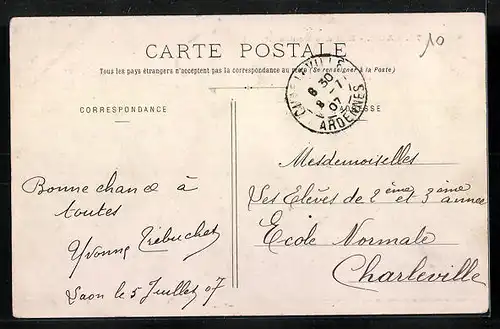 10
CARTE POSTALE
Tous les pays étrangers n'acceptent pas la correspondance au recto (Se renseigner à la Poste)
CHARLEVILLE
8 30
8 -7
07
ARDENNES
CORRESPONDANCE
ADRESSE
Bonne chance à
toutes
Yvonne Trébuchet
Laon le 5 Juillet 07
Mesdemoiselles
Les Elèves de 2ème et 3ème année
Ecole Normale
Charleville